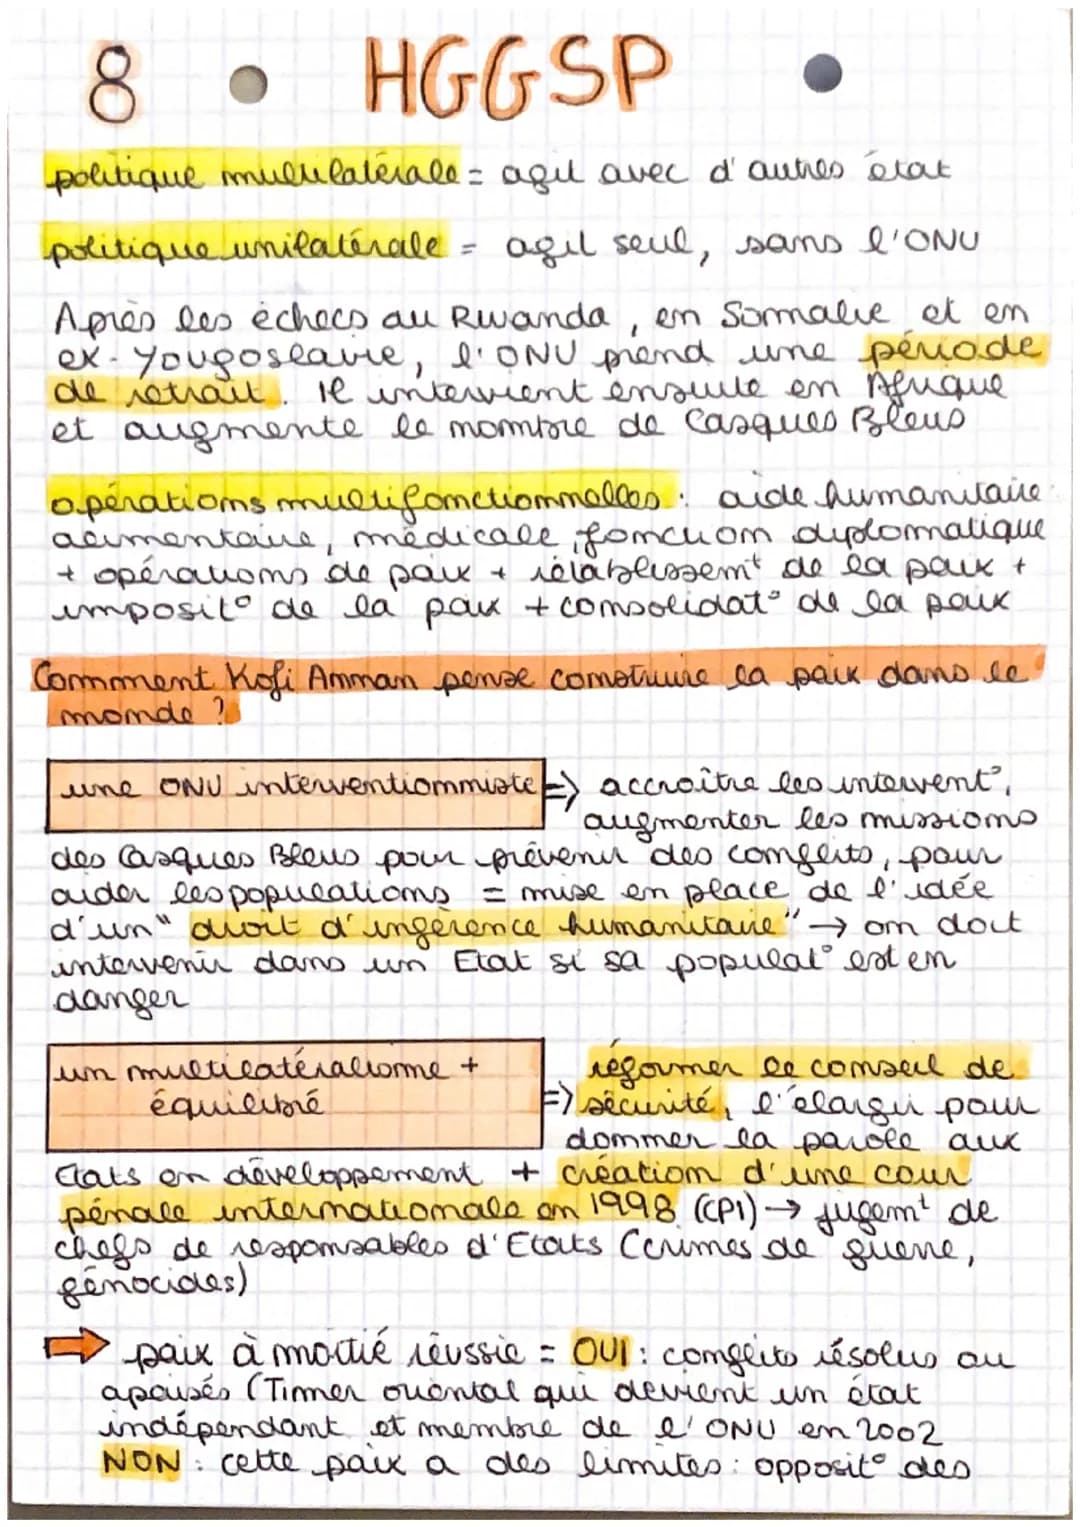 8 HGGSP
politique multilatérale = agit avec d'autres état
politique unilatérale = agit seul, sans l'ONU
Après les échecs au Rwanda, en Somalie et en
ex-Yougoslavie, l'ONU prend une période
de retrait. Il intervient ensuite en Afrique
et augmente le nombre de Casques Bleus
opérations multifonctionnelles : aide humanitaire
alimentaire, médicale, fonction diplomatique
+ opérations de paix + rétablissemt de la paix +
imposit° de la paix + consolidat° de la paix
Comment Kofi Annan pense construire la paix dans le
monde ?
une ONU interventionniste => accroître les intervent°,
augmenter les missions
des Casques Bleus pour prévenir des conflits, pour
aider les populations = mise en place de l'idée
d'un "droit d'ingérence humanitaire" → on doit
intervenir dans un Etat si sa populat° est en
danger
un multilatéralisme +
équilibré
=> réformer le conseil de
sécurité, l'élargir pour
donner la parole aux
Etats en développement + création d'une cour
pénale internationale en 1998 (CPI) → jugemt de
chefs de responsables d'Etats (crimes de guerre,
génocides)
paix à moitié réussie = OUI : conflits résolus ou
apaisés (Timor oriental qui devient un état
indépendant et membre de l'ONU en 2002
NON : cette paix a des limites : opposit° des